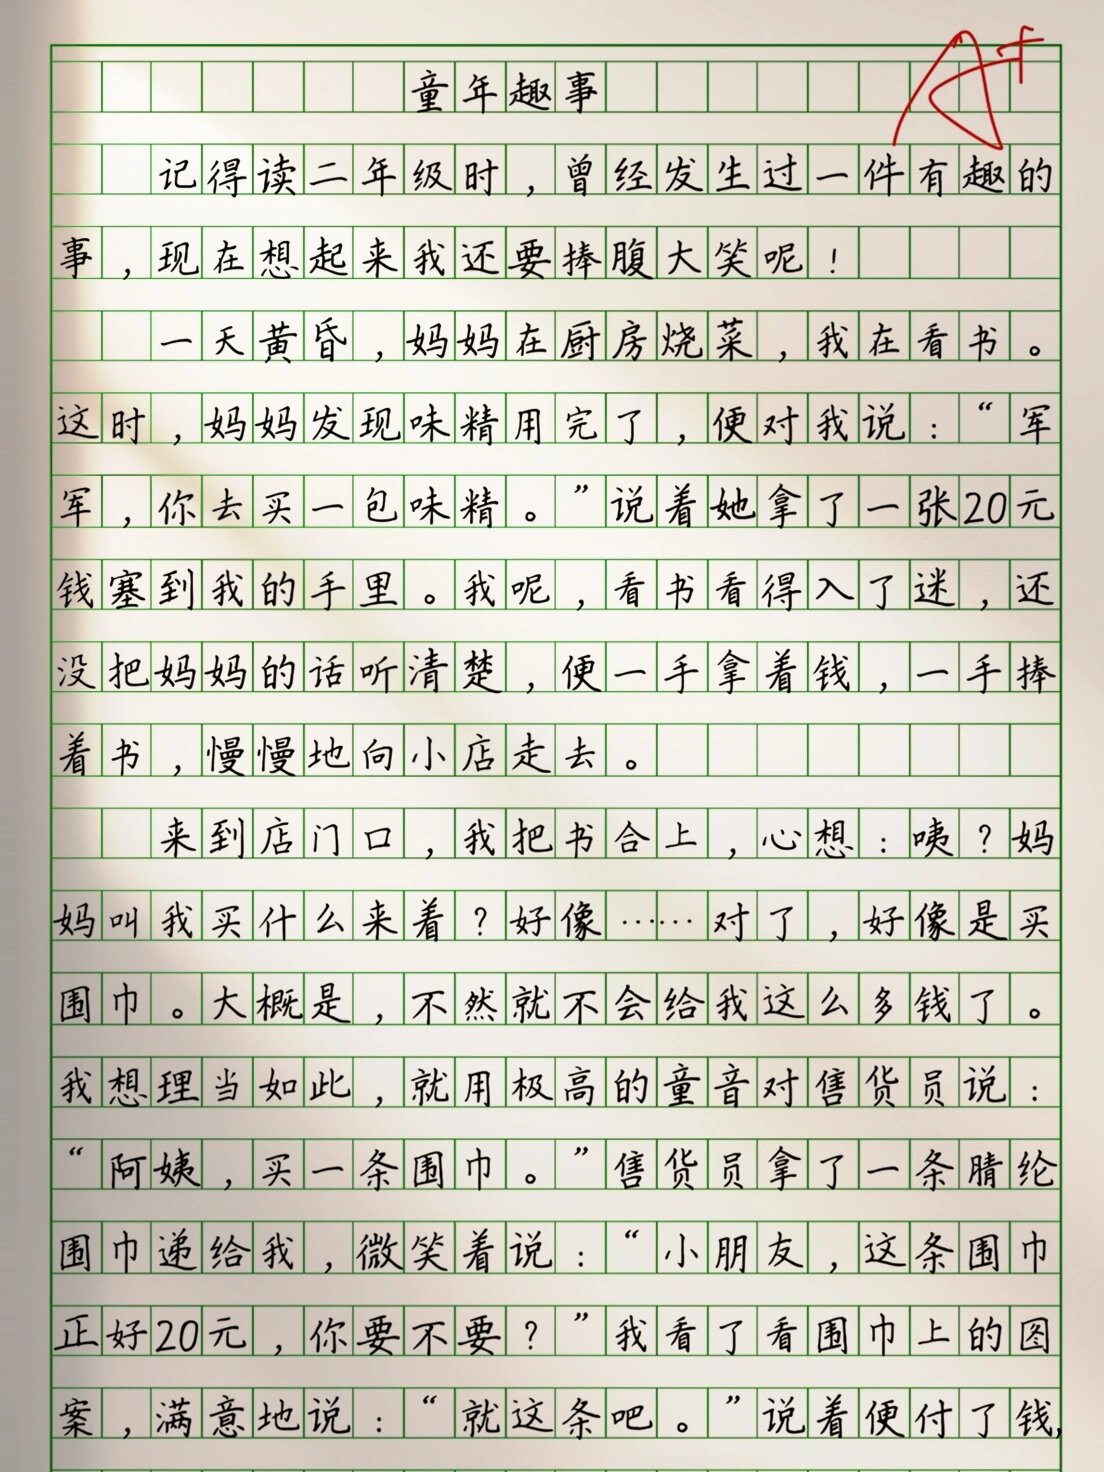 A+
童年趣事
记得读二年级时，曾经发生过一件有趣的
事，现在想起来我还要捧腹大笑呢！
一天黄昏，妈妈在厨房烧菜，我在看书。
这时，妈妈发现味精用完了，便对我说：“军
军，你去买一包味精。”说着她拿了一张20元
钱塞到我的手里。我呢，看书看得入了迷，还
没把妈妈的话听清楚，便一手拿着钱，一手捧
着书，慢慢地向小店走去。
来到店门口，我把书合上，心想：咦？妈
妈叫我买什么来着？好像……对了，好像是买
围巾。大概是，不然就不会给我这么多钱了。
我想理当如此，就用极高的童音对售货员说：
“阿姨，买一条围巾。”售货员拿了一条腈纶
围巾递给我，微笑着说：“小朋友，这条围巾
正好20元，你要不要？”我看了看围巾上的图
案，满意地说：“就这条吧。”说着便付了钱，